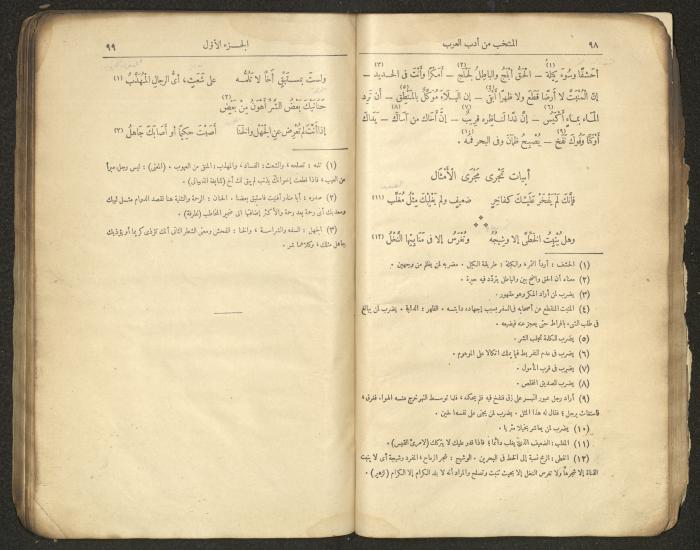 ٩٨
المنتخب من أدب العرب
أَحَشَفًا وَسُوءَ كِيلَةٍ (١) — الْحَقُّ أَبْلَجُ والباطِلُ لَجْلَجٌ (٢) — أَمَكْرًا وَأَنْتَ فى الحديد (٣) —
إنّ المُنْبَتَّ لا أرضًا قَطَعَ ولا ظهرًا أَبْقَى (٤) — إن البَلَاءَ مُوَكَّلٌ بالمَنْطِقِ (٥) — أن تَرِدَ
الماءَ بماءٍ أَكْيَسُ (٦) — إنّ غدًا لناظِرِه قَرِيبُ (٧) — إنّ أخاك من آسَاكَ (٨) — يَدَاكَ
أَوْكَتَا وَفُوكَ نَفَخَ (٩) — يُصْبِحُ ظمْآنَ وفى البحر فَمُهُ (١٠) .
أبيات تجرى مَجْرَى الأمْثَال
فإنّكَ لَمْ يَفْخَرْ عَلَيْكَ كفاخِرٍ ضعيفٍ ولم يَغْلِبْكَ مِثْلُ مُغَلَّبِ (١١)
وهل يُنْبِتُ الخَطِّىَّ إلا وشِيجُهُ وتُغْرَسُ إلا فى مَنَابِتِها النَّخْلُ (١٢)
(١) الحشف : أردأ التمر، والكيلة : طريقة الكيل . مضربه لمن يظلم من وجهين .
(٢) معناه أن الحق واضح بين والباطل يتردّد فيه حيرة .
(٣) يضرب لمن أراد المكر وهو مقهور .
(٤) المنبت المنقطع عن أصحابه فى السفر بسبب إجهاده دابته . الظهر : الدابة . يضرب لمن يبالغ
فى طلب الشىء بإفراط حتى يعجز عنه فيضيعه .
(٥) يضرب للكلمة تجلب الشر .
(٦) يضرب فى عدم التفريط فيما يملك اتكالا على الموهوم .
(٧) يضرب فى قرب المأمول .
(٨) يضرب للصديق المخلص .
(٩) أراد رجل عبور النهر على زق فنفخ فيه فلم يحكمه ، فلما توسط النهر خرج منه الهواء فغرق ،
فاستغاث برجل ؛ فقال له هذا المثل . يضرب لمن يجنى على نفسه الحين .
(١٠) يضرب لمن يعاشر بخيلا مثريا .
(١١) المغلب : الضعيف الذى يغلب دائما ؛ فاذا قدر عليك لا يتركك (لامرئ القيس) .
(١٢) الخطى : الرمح نسبة إلى الخط فى البحرين . الوشيج : شجر الرماح، المفرد وشيجة أى لا ينبت
القناة إلا شجرها ولا تغرس النخل إلا بحيث تنبت وتصلح والمراد أنه لا يلد الكرام إلا الكرام (لزهير) .
الجزء الأوّل
٩٩
ولستَ بمستَبْقٍ أخًا لا تَلُمُّه على شَعَثٍ، أىُّ الرجال المُهَذَّبُ (١)
حَنَانَيْكَ بَعْضُ الشَّرِّ أَهْوَنُ مِنْ بَعْضِ (٢)
إذا أنْتَ لم تُعْرِض عن الجَهْلِ والخَنَا أَصَبْتَ حكيمًا أو أصابَكَ جَاهِلُ (٣)
(١) تلمه : تصلحه ، والشعث : الفساد ، والمهذب : المنقى من العيوب . (المعنى) : ليس رجل مبرأ
من العيب ، فاذا قطعت إخوانك بذنب لم يبق لك أخ (للنابغة الذبيانى) .
(٢) صدره : أبا منذر أفنيت فاستبق بعضنا . الحنان : الرحمة والتثنية هنا لقصد الدوام
(٣) الجهل : السفه والشراسة ، والخنا : الفحش ومعنى الشطر الثانى أنك تؤذى كريما أو يؤذيك
جاهل مثلك ، وكلاهما شر .